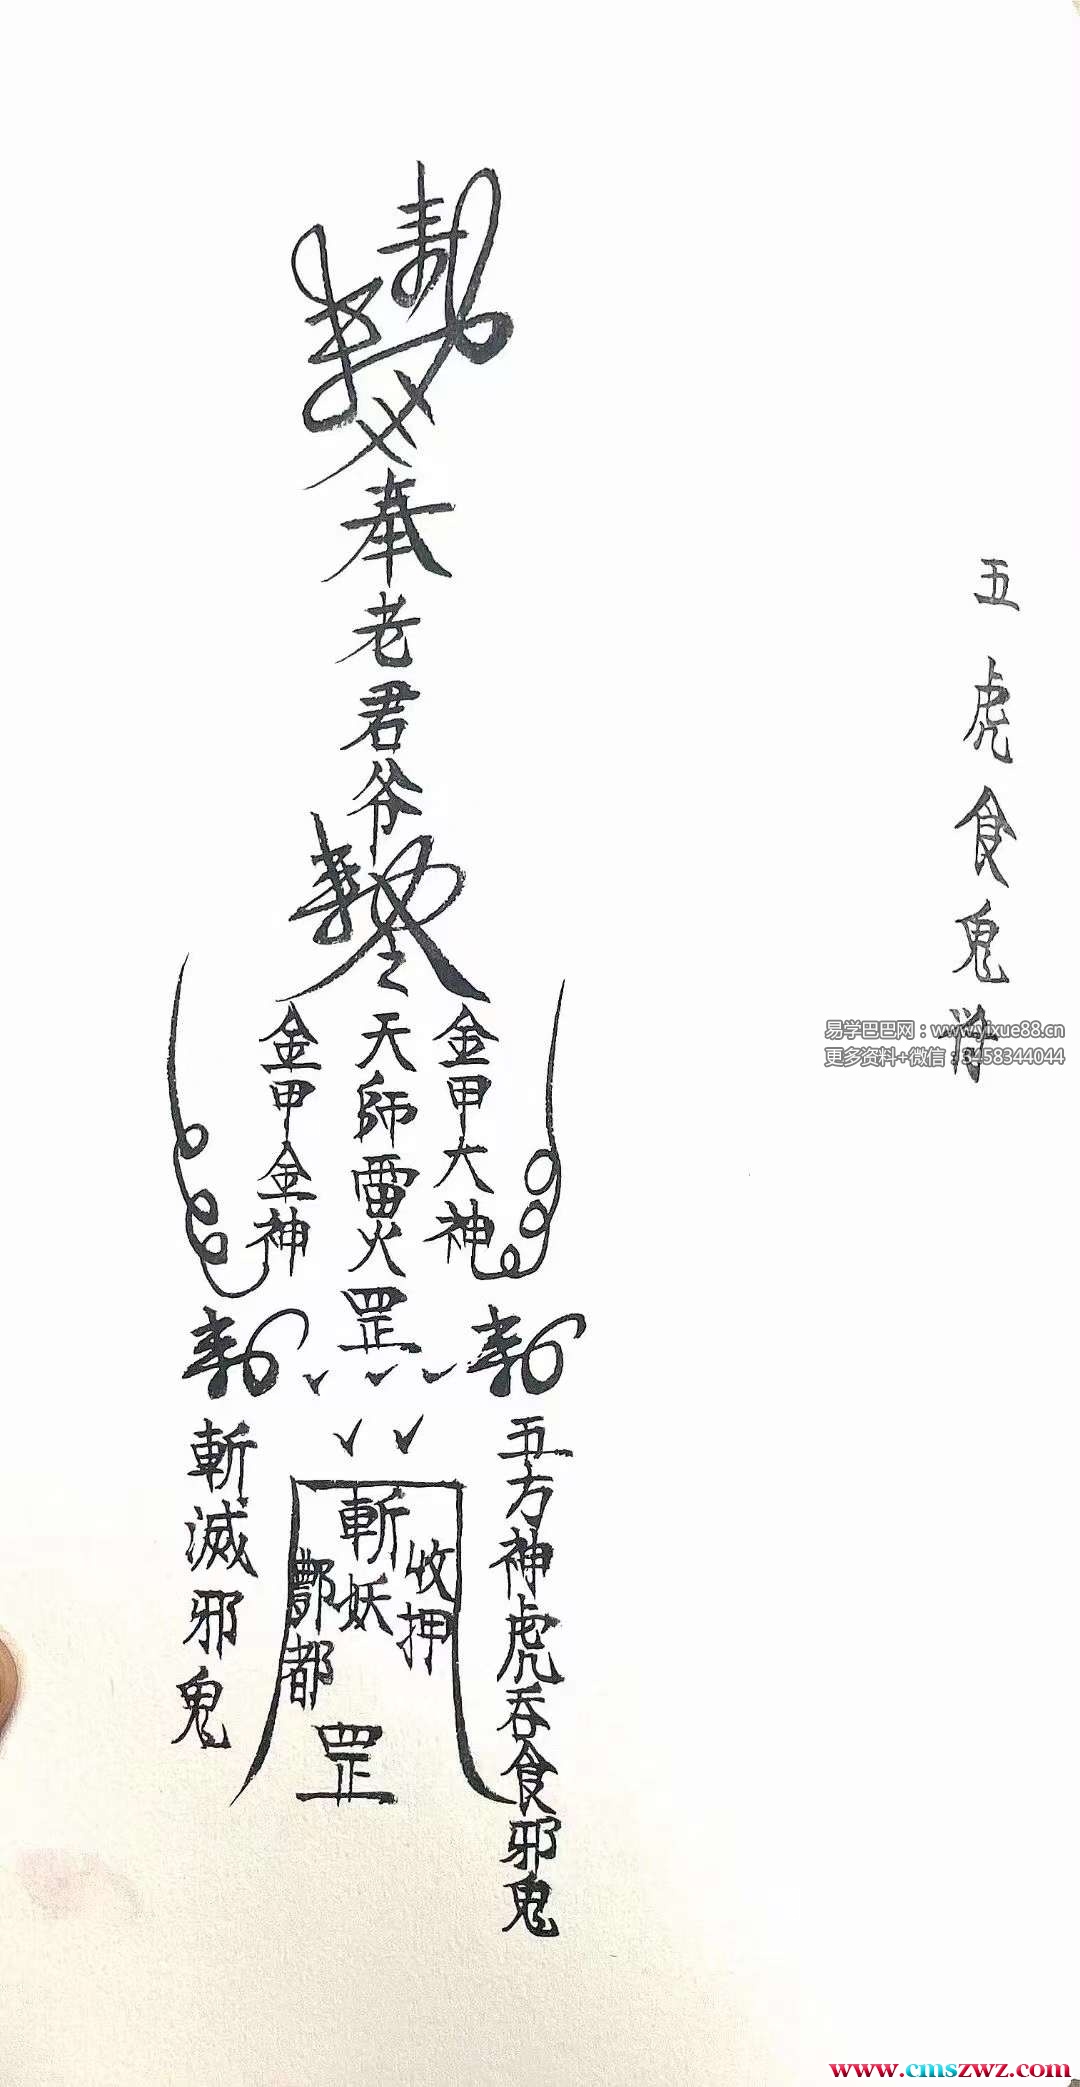 五虎食鬼符
奉老君爷
敕令
金甲大神
天師雷火罡
金甲金神
五方神虎吞食邪鬼
斬滅邪鬼
收押
斬妖
酆都
罡
易学巴巴网：www.yixue88.cn
更多资料+微信：3458344044
www.cmszwz.com